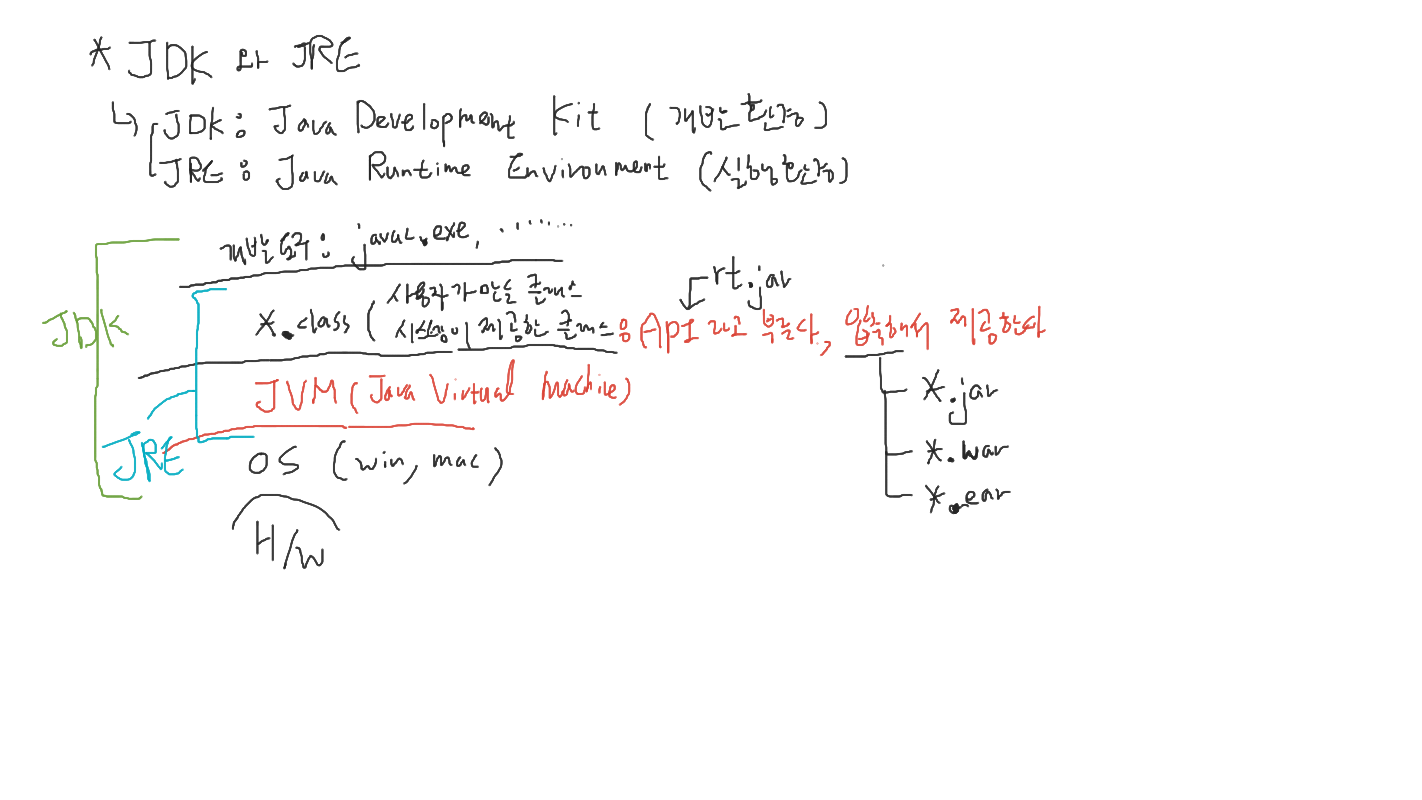 * JDK 와 JRE
JDK : Java Development Kit (개발환경)
JRE : Java Runtime Environment (실행환경)
개발도구 : javac.exe, ........
rt.jar
*.class ( 사용자가 만든 클래스
시스템이 제공한 클래스 을 API 라고 부른다, 압축해서 제공한다
JDK
JVM (Java Virtual Machine)
*.jar
JRE
OS (win, mac)
*.war
*.ear
H/W